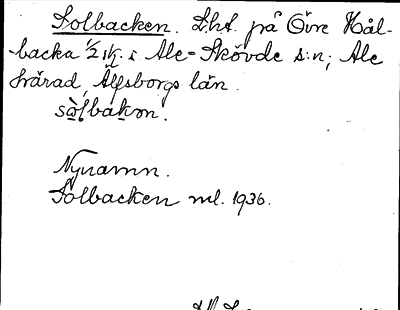 Solbacken. Lht. på Övre Hål-
backa ½ i Ale-Skövde s:n, Ale
härad, Älfsborgs län.
Nynamn.
Solbacken ml. 1936.